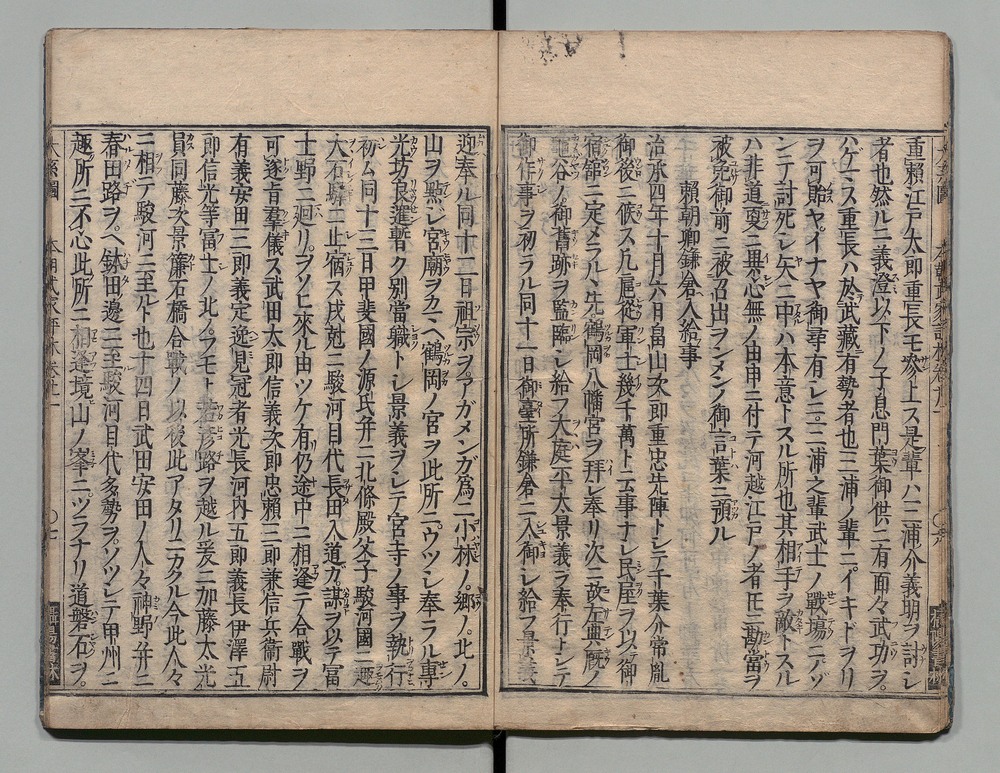 重頼江戸太郎重長モ參上ス是輩ハ三浦介義明ヲ討シ
者也然ルニ義澄以下ノ子息門葉御供ニ有面々武功ヲ
ハゲミス重長ハ於武藏ニ有勢者也三浦ノ輩ニイキドヲリ
ヲ可貽ヤイナヤ御尋有シニ三浦之輩武士ノ戰場ニテ
ンテ討死シ矢ニ中ハ本意トスル所也其相手ヲ敵トスル
ハ非道更ニ異心無ノ由申ニ付テ河越江戸ノ者𪜈勘當ヲ
被免御前ニ被召出ヲンメンノ御言葉ニ預ル
賴朝卿鎌倉入給事
治承四年十月六日畠山次郎重忠先陣トシテ千葉介常胤
御後ニ候ス凡扈從軍士幾千萬ト云事ナシ民屋ヲ以テ御
宿舘ニ定メラル先鶴岡八幡宮ヲ拜シ奉リ次ニ故左典厩ノ
龜谷ノ御舊跡ヲ監臨シ給フ大庭平太景義ヲ奉行トシテ
御作事ヲ初ラル同十一日御臺所鎌倉ニ入御シ給フ景義
迎奉ル同十二日祖宗ヲアガメンガ爲ニ小林ノ郷ノ北ノ
山ヲ點シ宮廟ヲカマヘ鶴岡ノ宮ヲ此所ニウツシ奉ラル專
光坊良暹暫ク別當職トシ景義ヲシテ宮寺ノ事ヲ執行
初ム同十三日甲斐國ノ源氏并ニ北條殿父子駿河國ニ趣
大石驛ニ止宿ス戌尅ニ駿河目代長田入道ガ謀ヲ以テ富
士野ニ廻リヲソヒ來ル由ツケ有仍途中ニ相逢テ合戰ヲ
可遂旨羣儀ス武田太郎信義次郎忠賴三郎兼信兵衛尉
有義安田三郎義定逸見冠者光長河内五郎義長伊澤五
郎信光等富士ノ北ノフモト若彦路ヲ越ル爰ニ加藤太光
員同藤次景廉石橋合戰ノ以後此アタリニカクル今此人々
ニ相テ駿河ニ至ルト也十四日武田安田ノ人々神野并ニ
春田路ヲヘ鉢田邊ニ至駿河目代多勢ヲソツシテ甲州ニ
趣所ニ不心此所ニ相逢境山ノ峯ニツラナリ道磐石ヲ